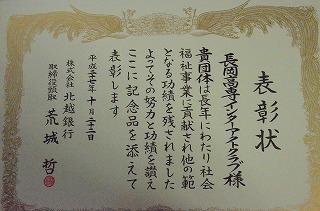 表彰状
長岡高専インターアクトクラブ様
貴団体は長年にわたり社会
福祉事業に貢献され他の範
となる功績を残されました
よってその努力と功績を讃え
ここに記念品を添えて
表彰します
平成二十七年十月二十二日
株式会社北越銀行
取締役頭取荒城哲